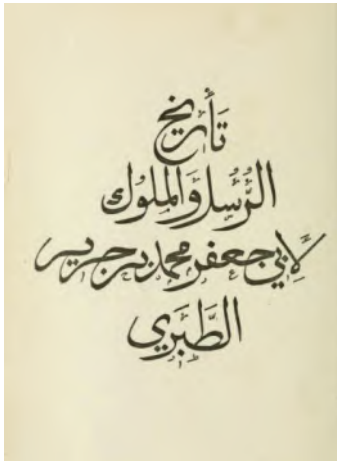 تَأريخ
الرُّسُل وَالمُلوُك
لِأبي جعفر محمد بن جرير
الطَّبَرِي